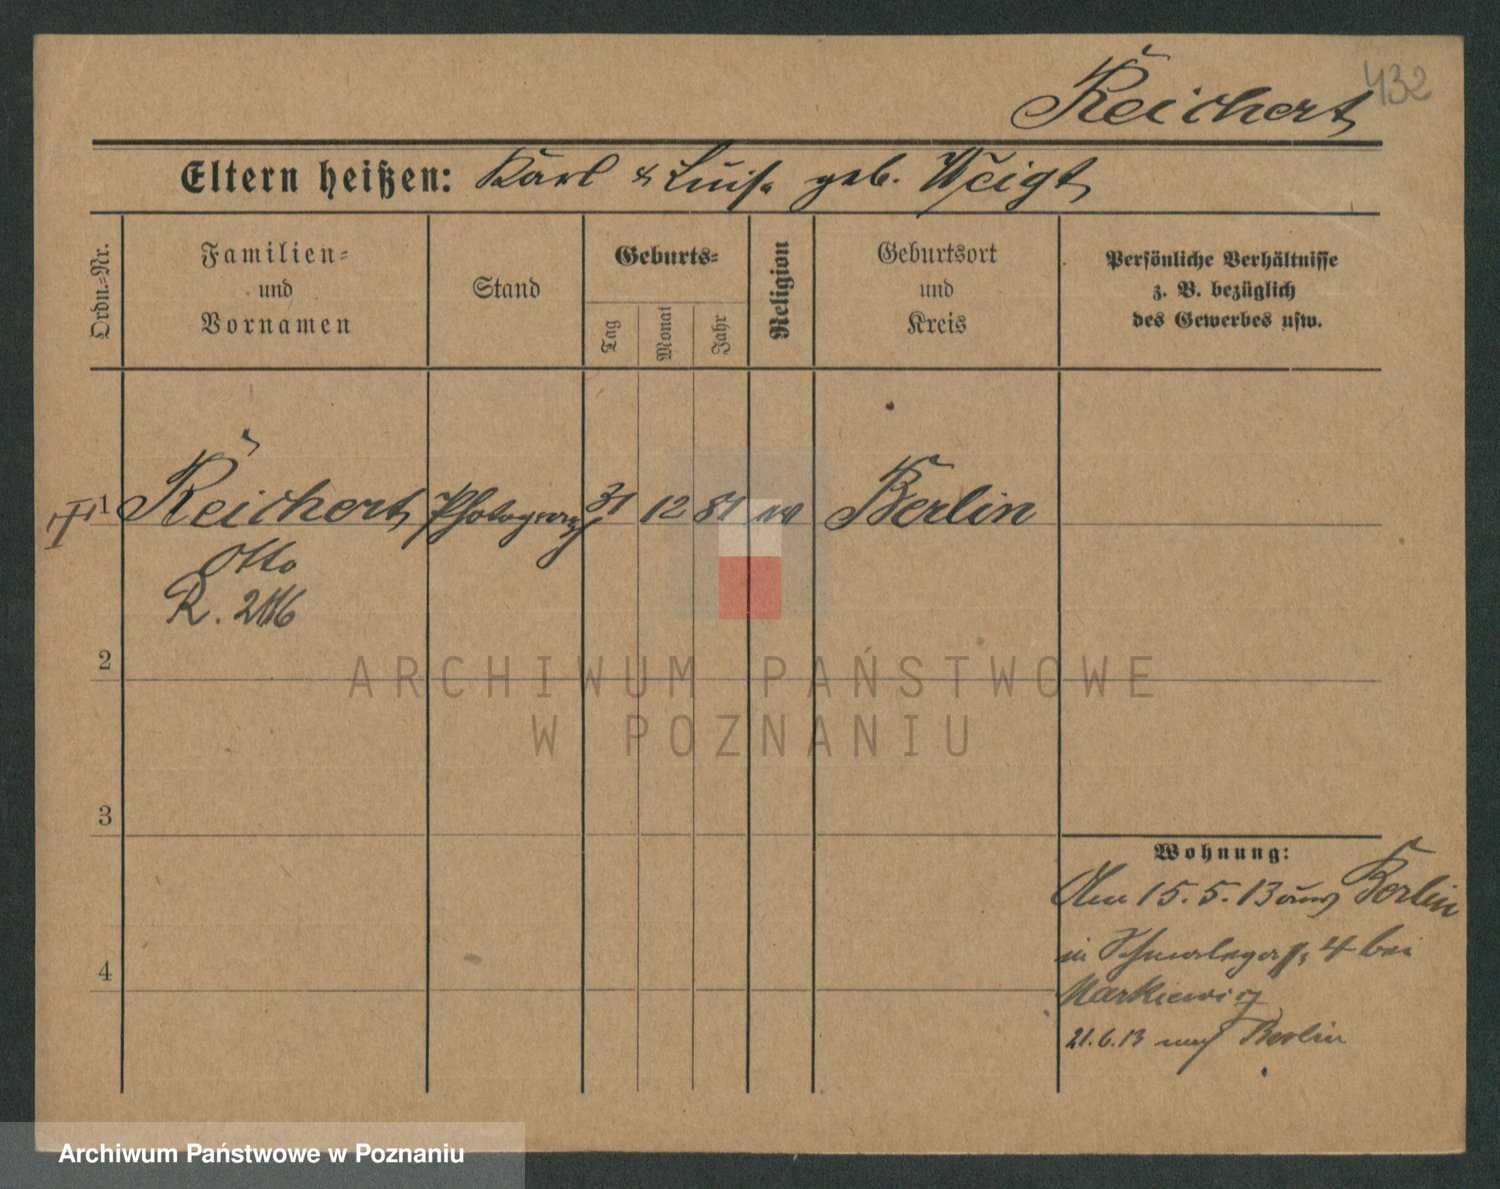 Reichert
432
Eltern heißen: Karl & Luise geb. Weigt
Ordn.=Nr.
Familien=
und
Vornamen
Stand
Geburts=
Tag
Monat
Jahr
Religion
Geburtsort
und
Kreis
Persönliche Verhältnisse
z. B. bezüglich
des Gewerbes usw.
1
Reichert Photograph 31 12 81 Berlin
Otto
R. 2116
2
3
4
Wohnung:
Am 15.5.13 aus Berlin
in 4 bei
Markiewicz
21.6.13 nach Berlin
ARCHIWUM PAŃSTWOWE
W POZNANIU
Archiwum Państwowe w Poznaniu